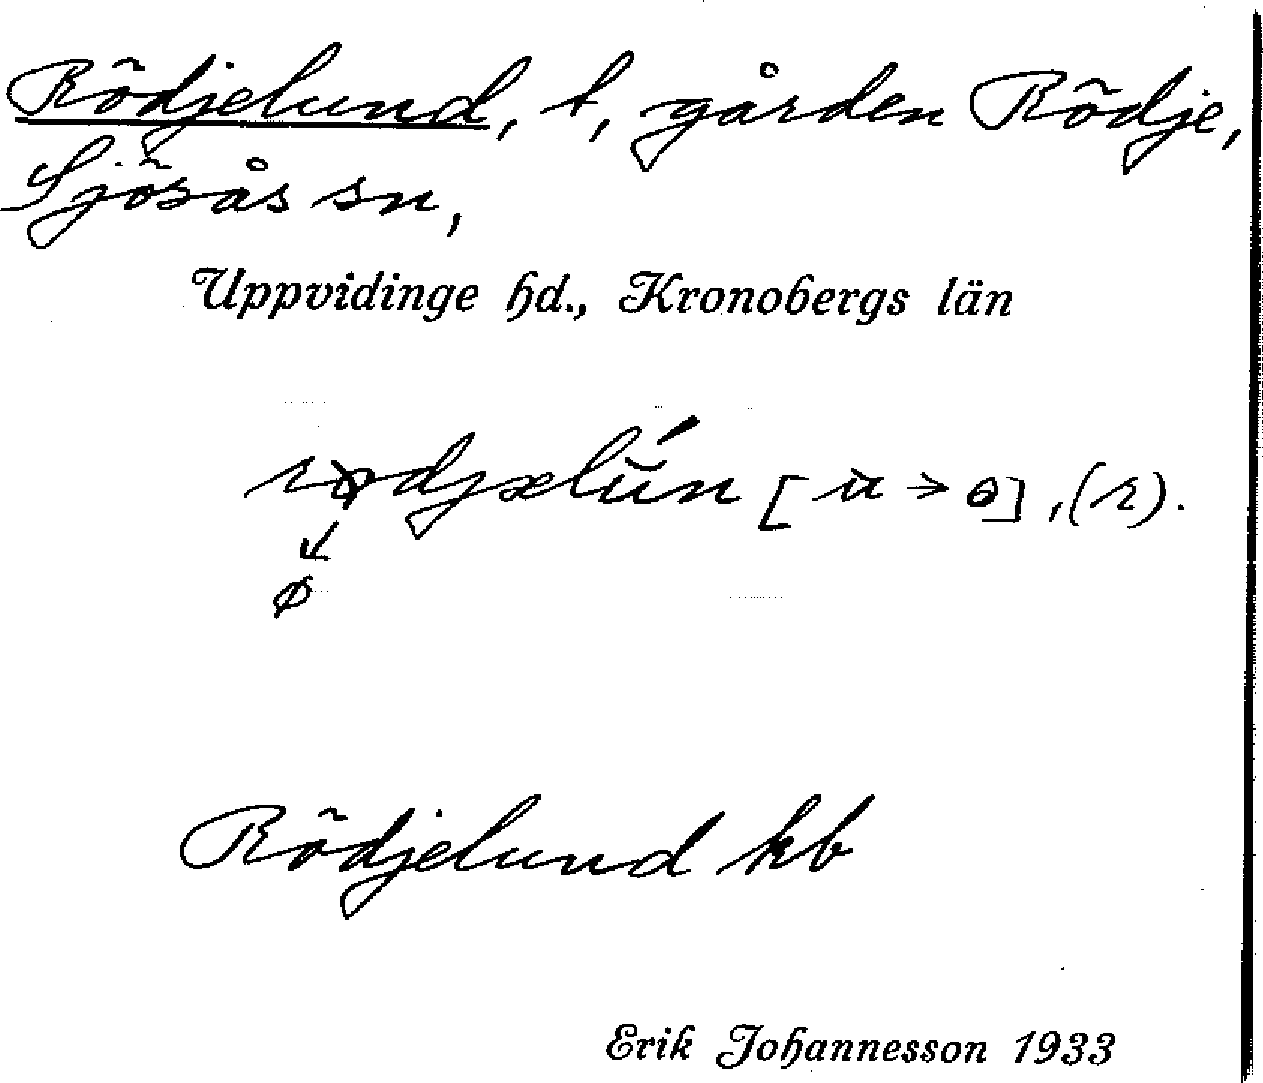 Rödjelund, t, gården Rödje,
Sjösås sn,
Uppvidinge hd., Kronobergs län
[u → ɵ], (r).
ø
Rödjelund kb
Erik Johannesson 1933